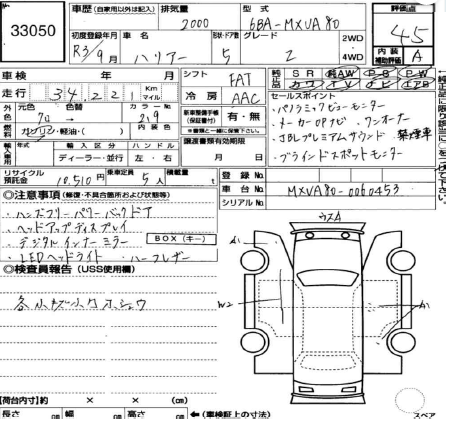 33050
車歴 (自家用以外は記入) 排気量 型式 評価点
2000 6BA-MXVA80 4.5
初度登録年月 車名 形状・ドア数 グレード 2WD 内装補助評価
R3/9月 ハリアー 5 Z 4WD A
車検 年 月 シフト FAT 純正品 SR 純AW PS PW
走行 34,221 Km マイル 冷房 AAC カワ TV ナビ エアB
外色 元色 色替 カラーNo セールスポイント
クロ 219 ・パノラミックビューモニター
燃料 ガソリン・軽油・( ) 内装色 新車整備手帳(保証書付) 有・無 ・メーカーOPナビ ・ワンオーナー
※書類と一緒に保管して下さい。 ・JBLプレミアムサウンド 禁煙車
輸入車用 年式 輸入区分 ハンドル 譲渡書類有効期限 ・ブラインドスポットモニター
ディーラー・並行 左・右 月 日
リサイクル預託金 10,510円 乗車定員 5人 積載量 t 登録No.
車台No. MXVA80-0060453
シリアルNo.
◎注意事項 (修復・不具合箇所および状態等)
・ハンズフリーパワーバックドア
・ヘッドアップディスプレイ
・デジタルインナーミラー BOX(キー)
・LEDヘッドライト ・ハーフレザー
◎検査員報告 (USS使用欄)
ウスA
A1
W2
A1
【荷台内寸】約 × × (cm)
長さ cm 幅 cm 高さ cm ←(車検証上の寸法)
スペア